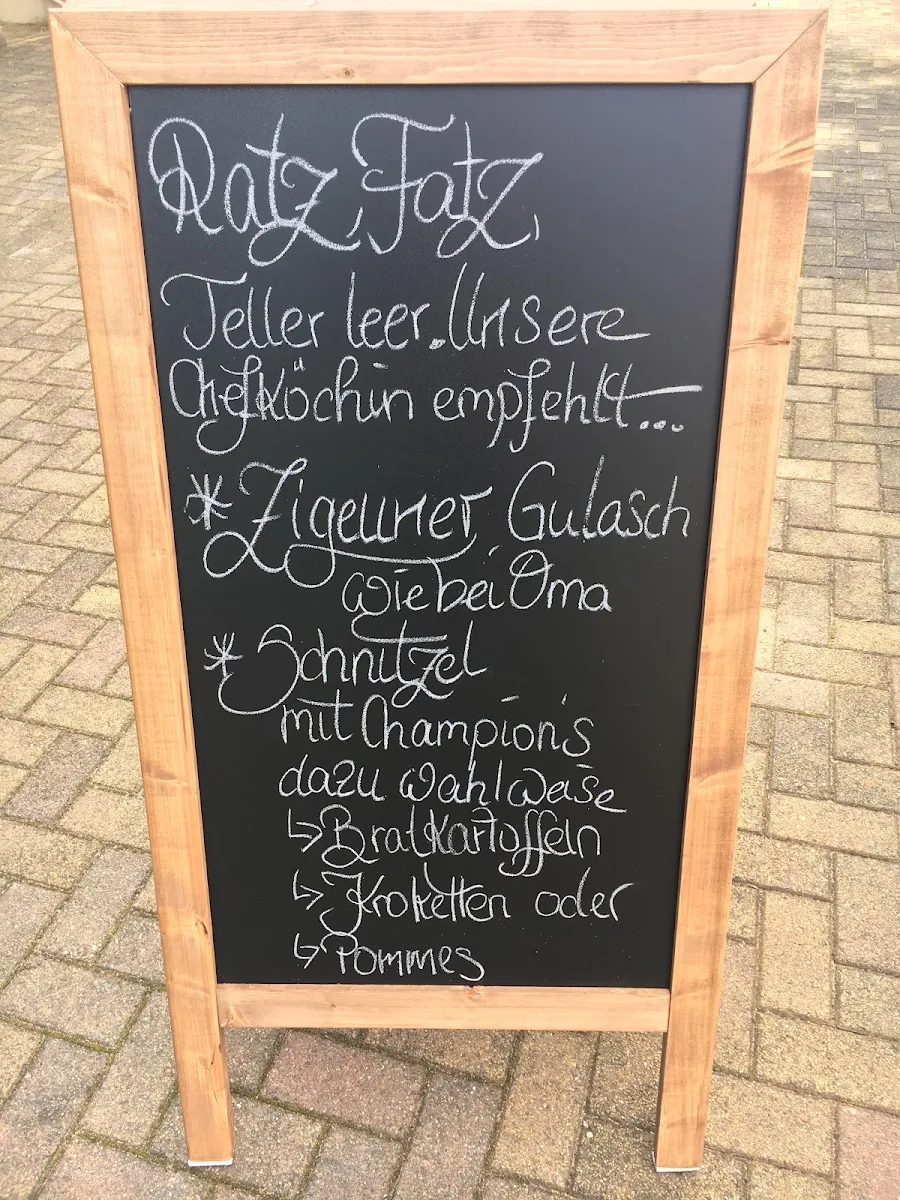 Ratz, Fatz,
Teller leer. Unsere
Chefköchin empfehlt...
* Zigeuner Gulasch
wie bei Oma
* Schnitzel
mit Champion's
dazu wahlweise
↳ Bratkartoffeln
↳ Kroketten oder
↳ Pommes